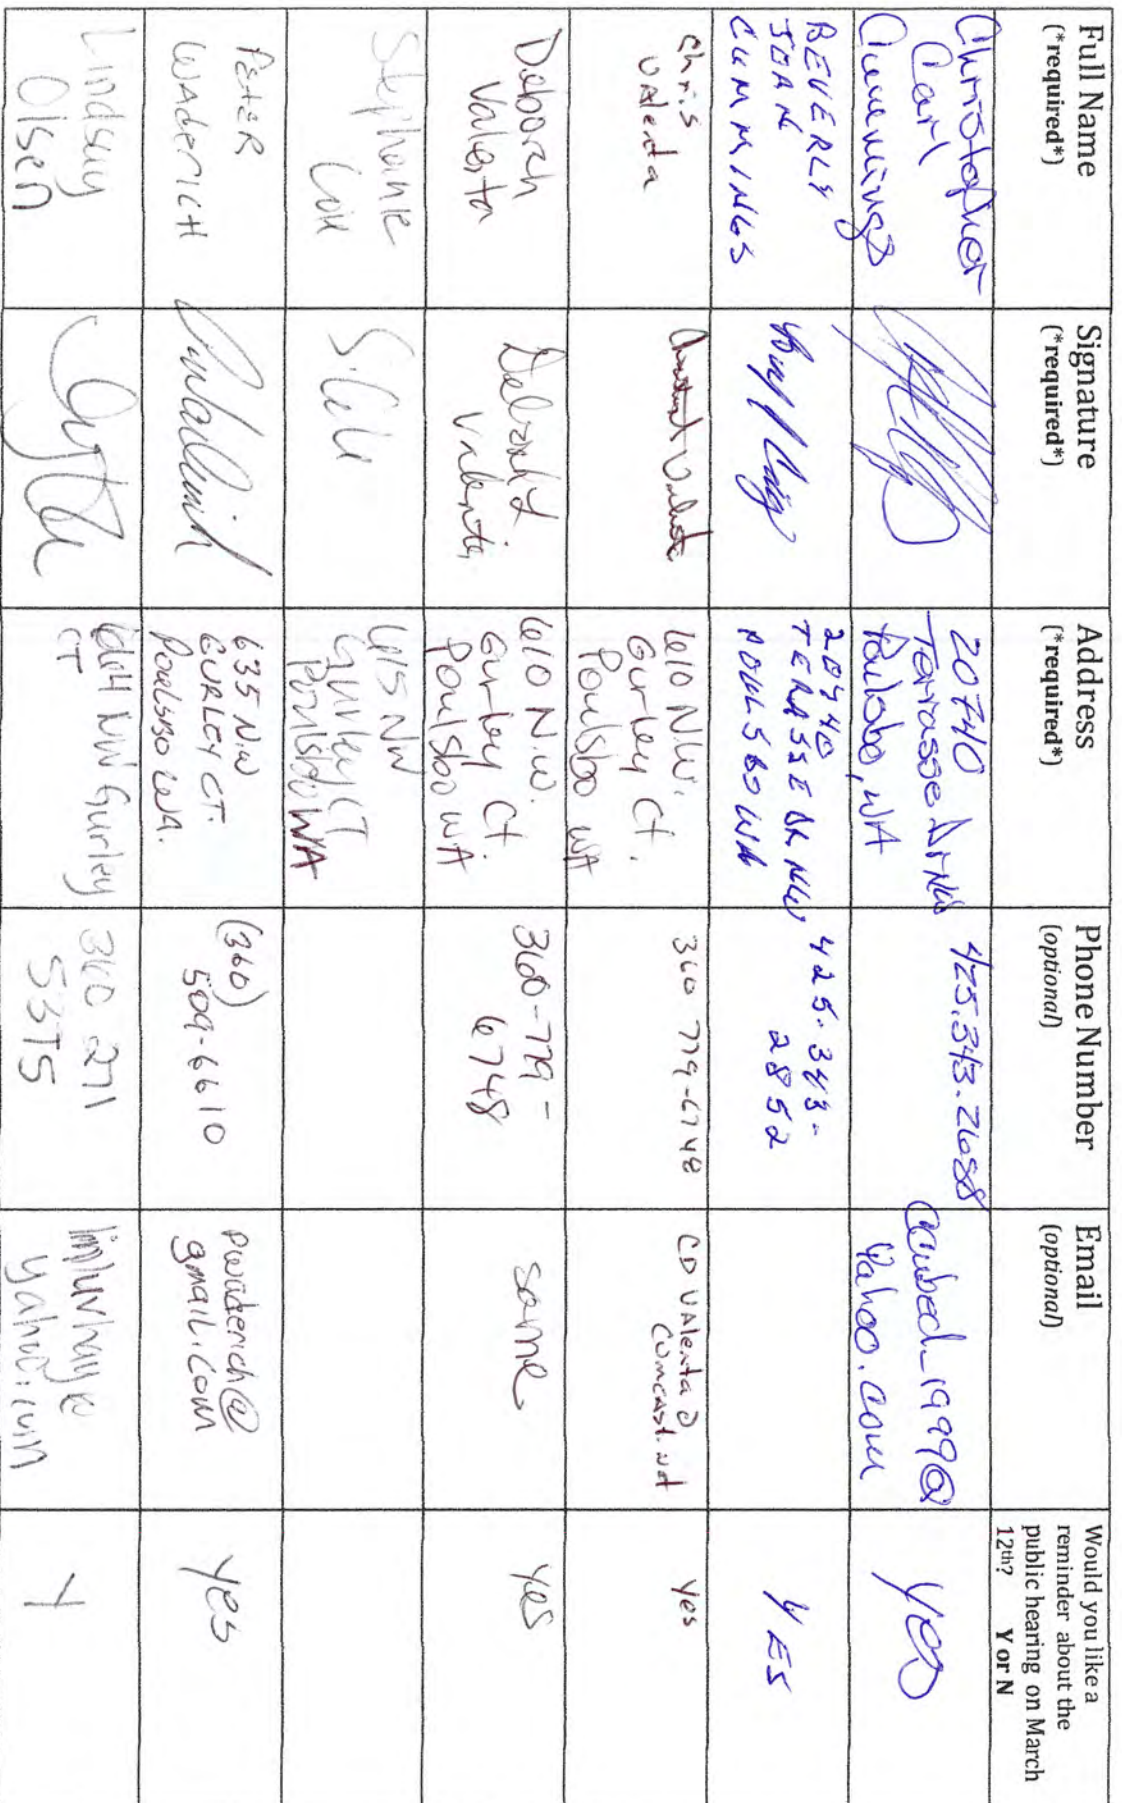 Full Name
(*required*)
Signature
(*required*)
Address
(*required*)
Phone Number
(optional)
Email
(optional)
Would you like a
reminder about the
public hearing on March
12th? Y or N
Christopher
Carl
Cummings
20740
Terrasse Dr NW
Poulsbo, WA
425.343.2688
Yahoo.com
yes
BEVERLY
JOAN
CUMMINGS
20740
TERASSE DR NW
POULSBO WA
425.343-
2852
YES
Chris
Valenta
610 N.W.
Gurley Ct.
Poulsbo WA
360 779-6748
CDValenta@
comcast.net
Yes
Deborah
Valenta
Deborah
Valenta
610 N.W.
Gurley Ct.
Poulsbo WA
360-779-
6748
same
Yes
Stephanie
615 NW
Gurley CT
Poulsbo WA
Peter
WADERICH
635 N.W
GURLEY CT.
POULSBO WA.
(360)
509-6610
pwaderich@
gmail.com
yes
Lindsay
Olsen
NW Gurley
CT
360 271
5375
yahoo.com
Y